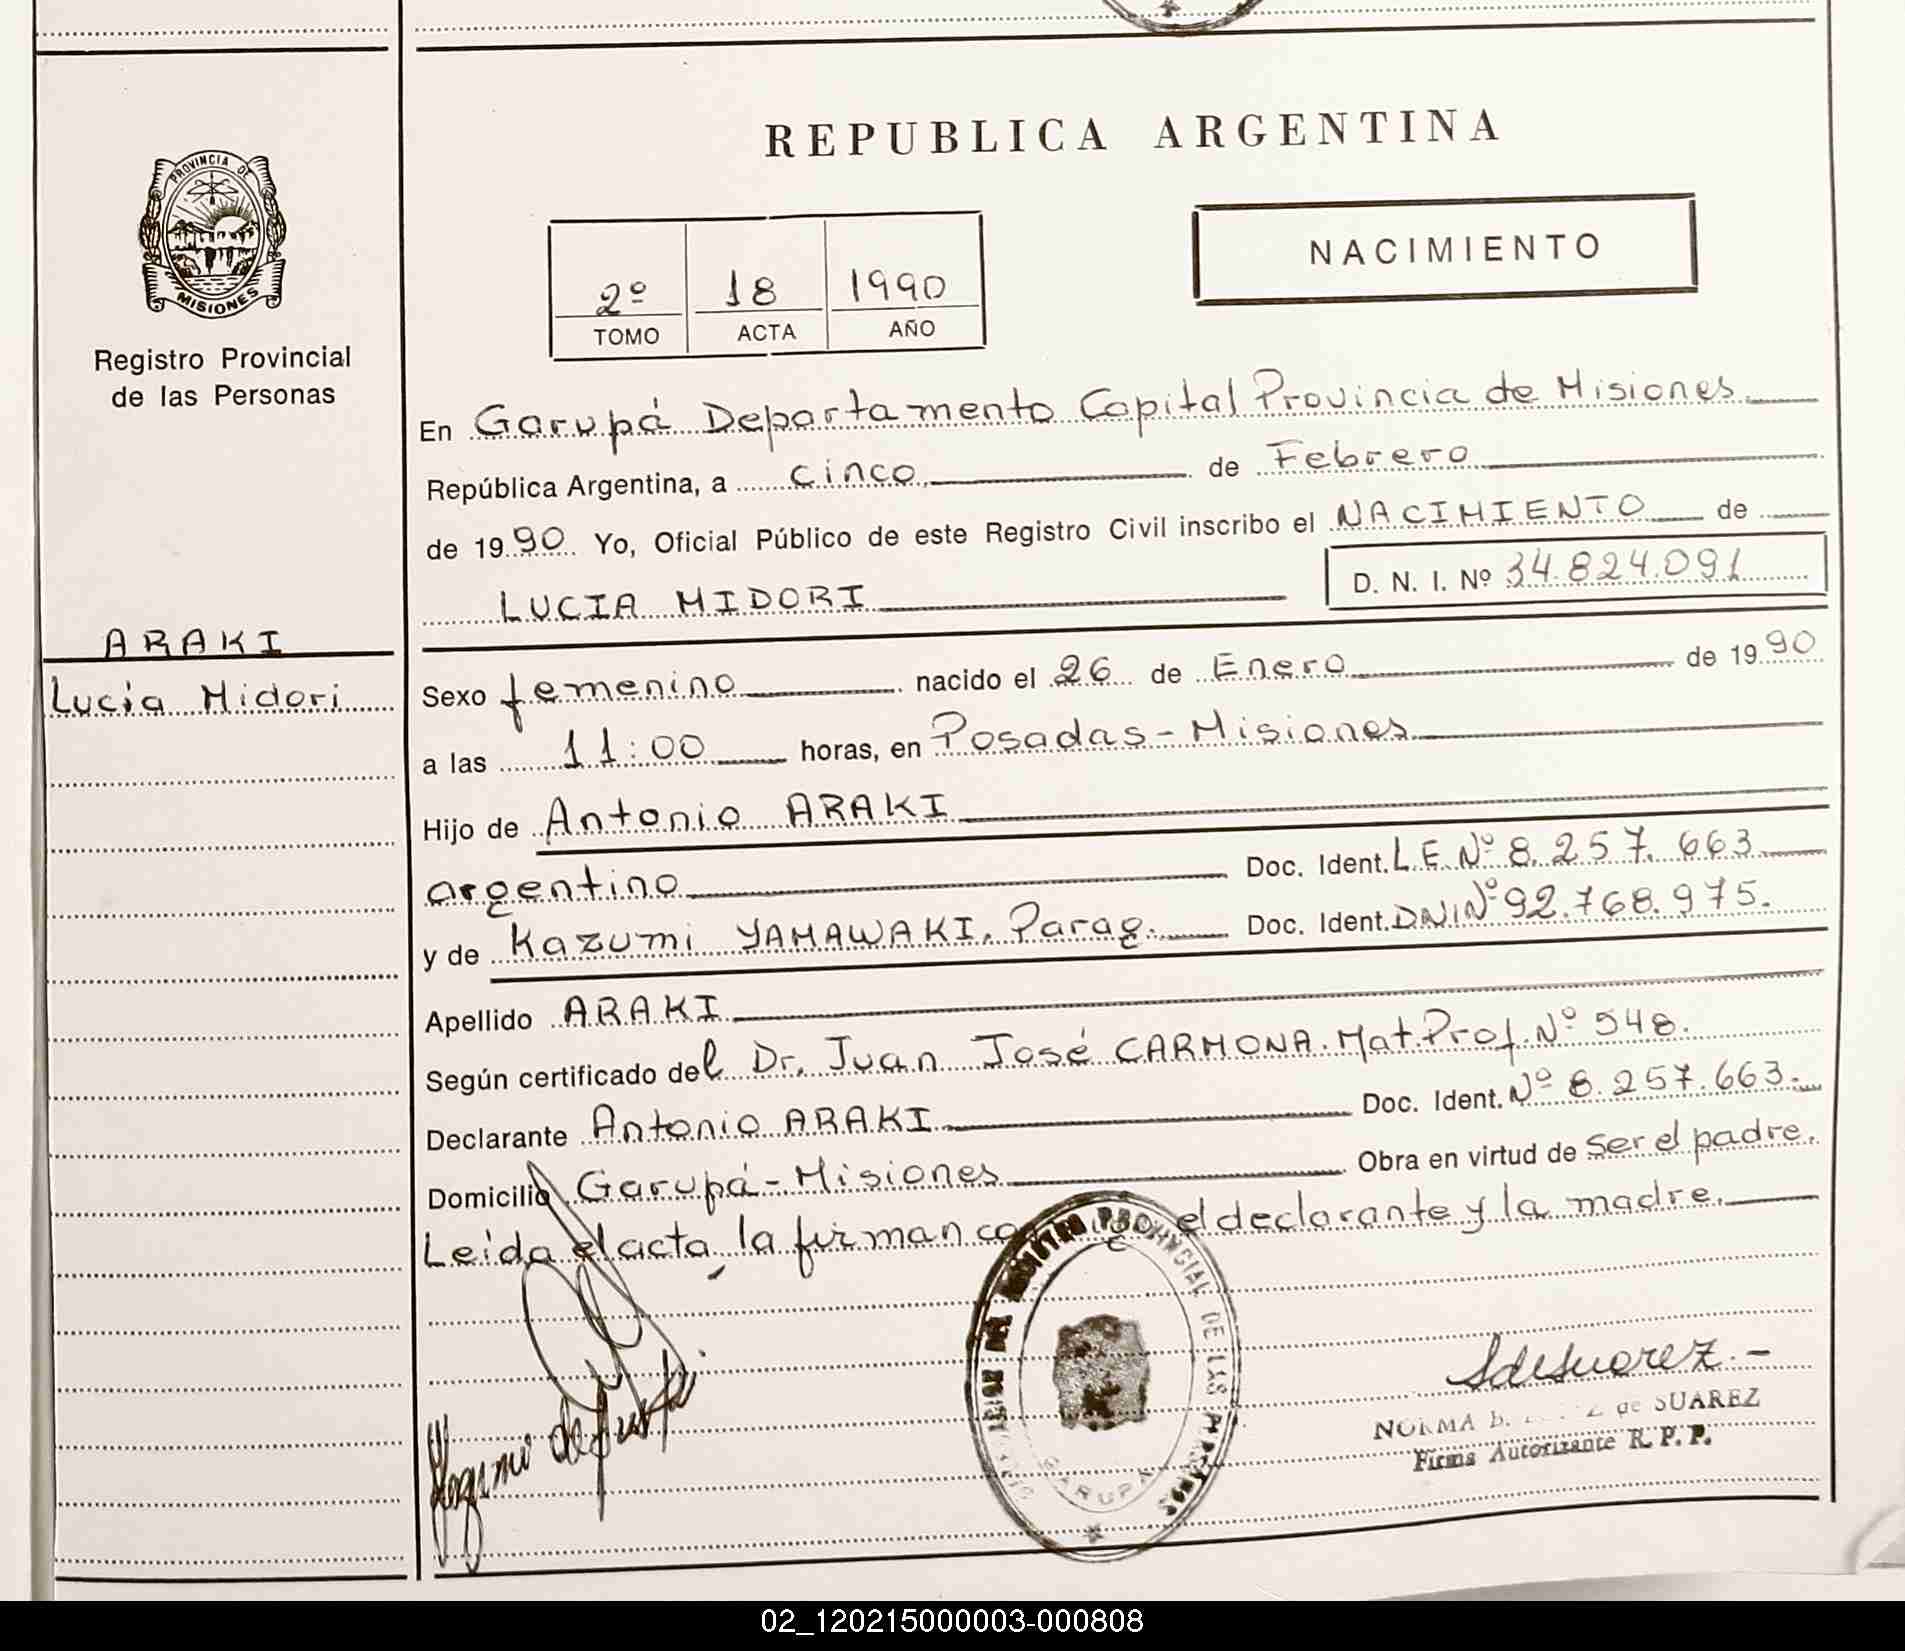 PROVINCIA DE
MISIONES
Registro Provincial
de las Personas
ARAKI
Lucía Midori
REPUBLICA ARGENTINA
2º 18 1990
TOMO ACTA AÑO
NACIMIENTO
En Garupá Departamento Capital Provincia de Misiones
República Argentina, a cinco de Febrero
de 1990 Yo, Oficial Público de este Registro Civil inscribo el NACIMIENTO de
LUCIA MIDORI D. N. I. Nº 34.824.091
Sexo femenino nacido el 26 de Enero de 1990
a las 11:00 horas, en Posadas - Misiones
Hijo de Antonio ARAKI
argentino Doc. Ident. L.E. Nº 8.257.663
y de Kazumi YAMAWAKI, Parag. Doc. Ident. DNI Nº 92.768.975.
Apellido ARAKI
Según certificado del Dr. Juan José CARMONA. Mat. Prof. Nº 548.
Declarante Antonio ARAKI Doc. Ident. Nº 8.257.663.
Domicilio Garupá - Misiones Obra en virtud de ser el padre.
Leída el acta, la firman el declarante y la madre.
PROVINCIAL DE LAS
GARUPA
NORMA B. de SUAREZ
Firma Autorizante R. P. P.
02_120215000003-000808